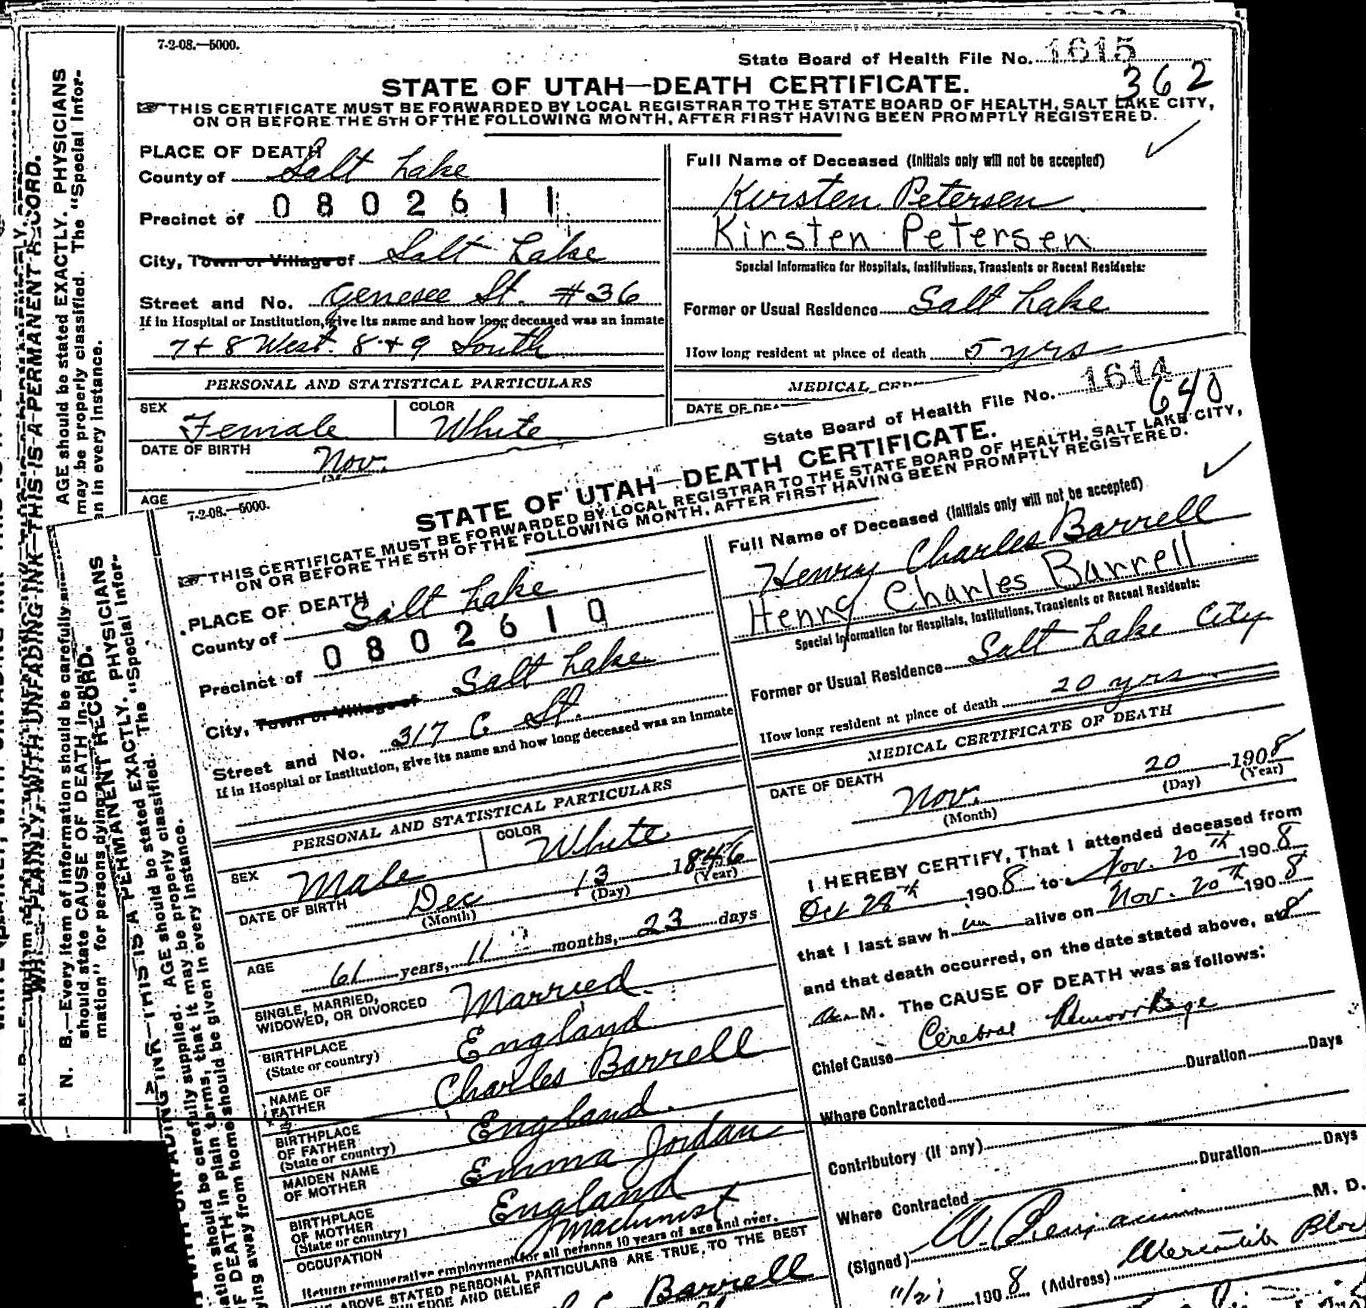 7-2-08.—5000.
State Board of Health File No. 1615
362
STATE OF UTAH—DEATH CERTIFICATE.
THIS CERTIFICATE MUST BE FORWARDED BY LOCAL REGISTRAR TO THE STATE BOARD OF HEALTH, SALT LAKE CITY,
ON OR BEFORE THE 5TH OF THE FOLLOWING MONTH, AFTER FIRST HAVING BEEN PROMPTLY REGISTERED.
PLACE OF DEATH
County of Salt Lake
0802611
Precinct of
City, Town or Village of Salt Lake
Street and No. Genesee St. #36
If in Hospital or Institution, give its name and how long deceased was an inmate
7 & 8 West. 8 & 9 South
Full Name of Deceased (Initials only will not be accepted)
Kirsten Petersen
Kirsten Petersen
Special Information for Hospitals, Institutions, Transients or Recent Residents:
Former or Usual Residence Salt Lake
How long resident at place of death 5 yrs
PERSONAL AND STATISTICAL PARTICULARS
SEX Female
COLOR White
DATE OF BIRTH Nov.
AGE
MEDICAL
DATE OF
7-2-08.—5000.
State Board of Health File No. 1614
640
STATE OF UTAH—DEATH CERTIFICATE.
THIS CERTIFICATE MUST BE FORWARDED BY LOCAL REGISTRAR TO THE STATE BOARD OF HEALTH, SALT LAKE CITY,
ON OR BEFORE THE 5TH OF THE FOLLOWING MONTH, AFTER FIRST HAVING BEEN PROMPTLY REGISTERED.
PLACE OF DEATH
County of Salt Lake
0802610
Precinct of
City, Town or Village of Salt Lake
Street and No. 317 C St.
If in Hospital or Institution, give its name and how long deceased was an inmate
Full Name of Deceased (Initials only will not be accepted)
Henry Charles Barrell
Henry Charles Barrell
Special Information for Hospitals, Institutions, Transients or Recent Residents:
Former or Usual Residence Salt Lake City
How long resident at place of death 20 yrs
PERSONAL AND STATISTICAL PARTICULARS
SEX Male
COLOR White
DATE OF BIRTH Dec 13 1846
(Month) (Day) (Year)
AGE 61 years, 11 months, 23 days
SINGLE, MARRIED,
WIDOWED, OR DIVORCED Married.
BIRTHPLACE
(State or country) England
NAME OF
FATHER Charles Barrell
BIRTHPLACE
OF FATHER
(State or country) England.
MAIDEN NAME
OF MOTHER Emma Jordan
BIRTHPLACE
OF MOTHER
(State or country) England
OCCUPATION Machinist
Return remunerative employment for all persons 10 years of age and over.
ABOVE STATED PERSONAL PARTICULARS ARE TRUE, TO THE BEST
KNOWLEDGE AND BELIEF
Barrell
MEDICAL CERTIFICATE OF DEATH
DATE OF DEATH
Nov. 20 1908
(Month) (Day) (Year)
I HEREBY CERTIFY, That I attended deceased from
Oct 28th 1908 to Nov. 20th 1908
that I last saw him alive on Nov. 20th 1908
and that death occurred, on the date stated above, at 8
a. M. The CAUSE OF DEATH was as follows:
Chief Cause Cerebral Hemorrhage
Duration Days
Where Contracted
Contributory (if any)
Duration Days
Where Contracted
(Signed) M. D.
11/21 1908 (Address) Mercantile Block
N. B.—Every item of information should be carefully
should state CAUSE OF DEATH in plain
mation" for persons dying
AGE should be stated EXACTLY. PHYSICIANS
may be properly classified. The "Special Infor-
en in every instance.
WRITE PLAINLY, WITH UNFADING INK—THIS IS A PERMANENT RECORD.
AGE should be stated EXACTLY. PHYSICIANS
that it may be properly classified. The "Special Infor-
should be given in every instance.
UNFADING INK—THIS IS A PERMANENT RECORD.